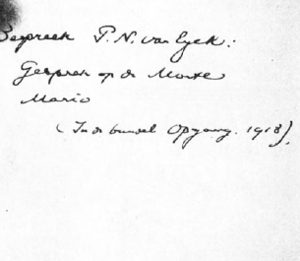 Bespreek P.N. van Eyck:
Gesprek op de
Mario
(In de bundel Opgang. 1918).